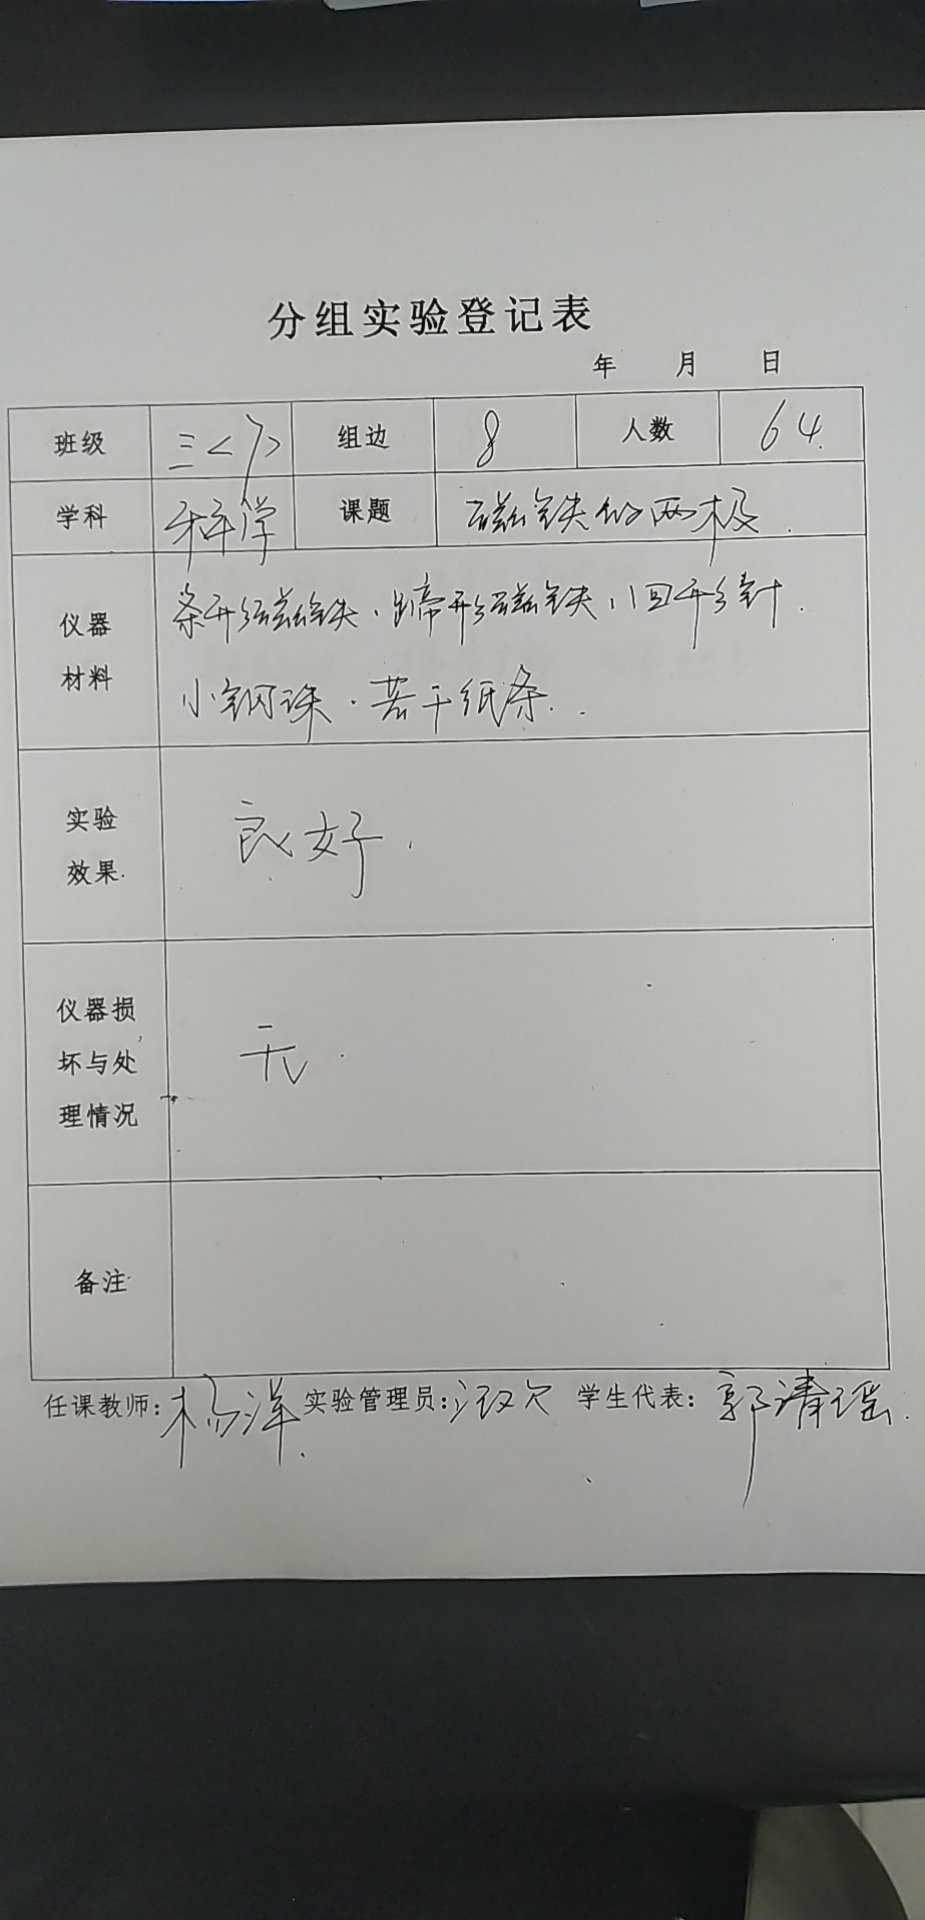 分组实验登记表
年 月 日
班级 三<7> 组边 8 人数 64
学科 科学 课题 磁铁的两极.
仪器
材料
条形磁铁、蹄形磁铁、回形针.
小钢珠.若干纸条.
实验
效果.
良好.
仪器损
坏与处
理情况
无.
备注
任课教师: 杨洋. 实验管理员: 学生代表: 郭清瑶.